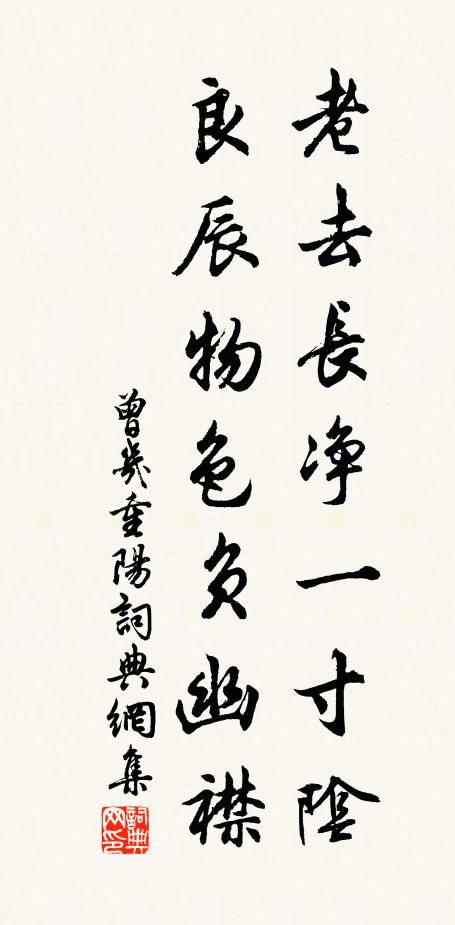 老去長净一寸陰
良辰物色負幽襟
曾幾重陽詞典網集
詞典網印